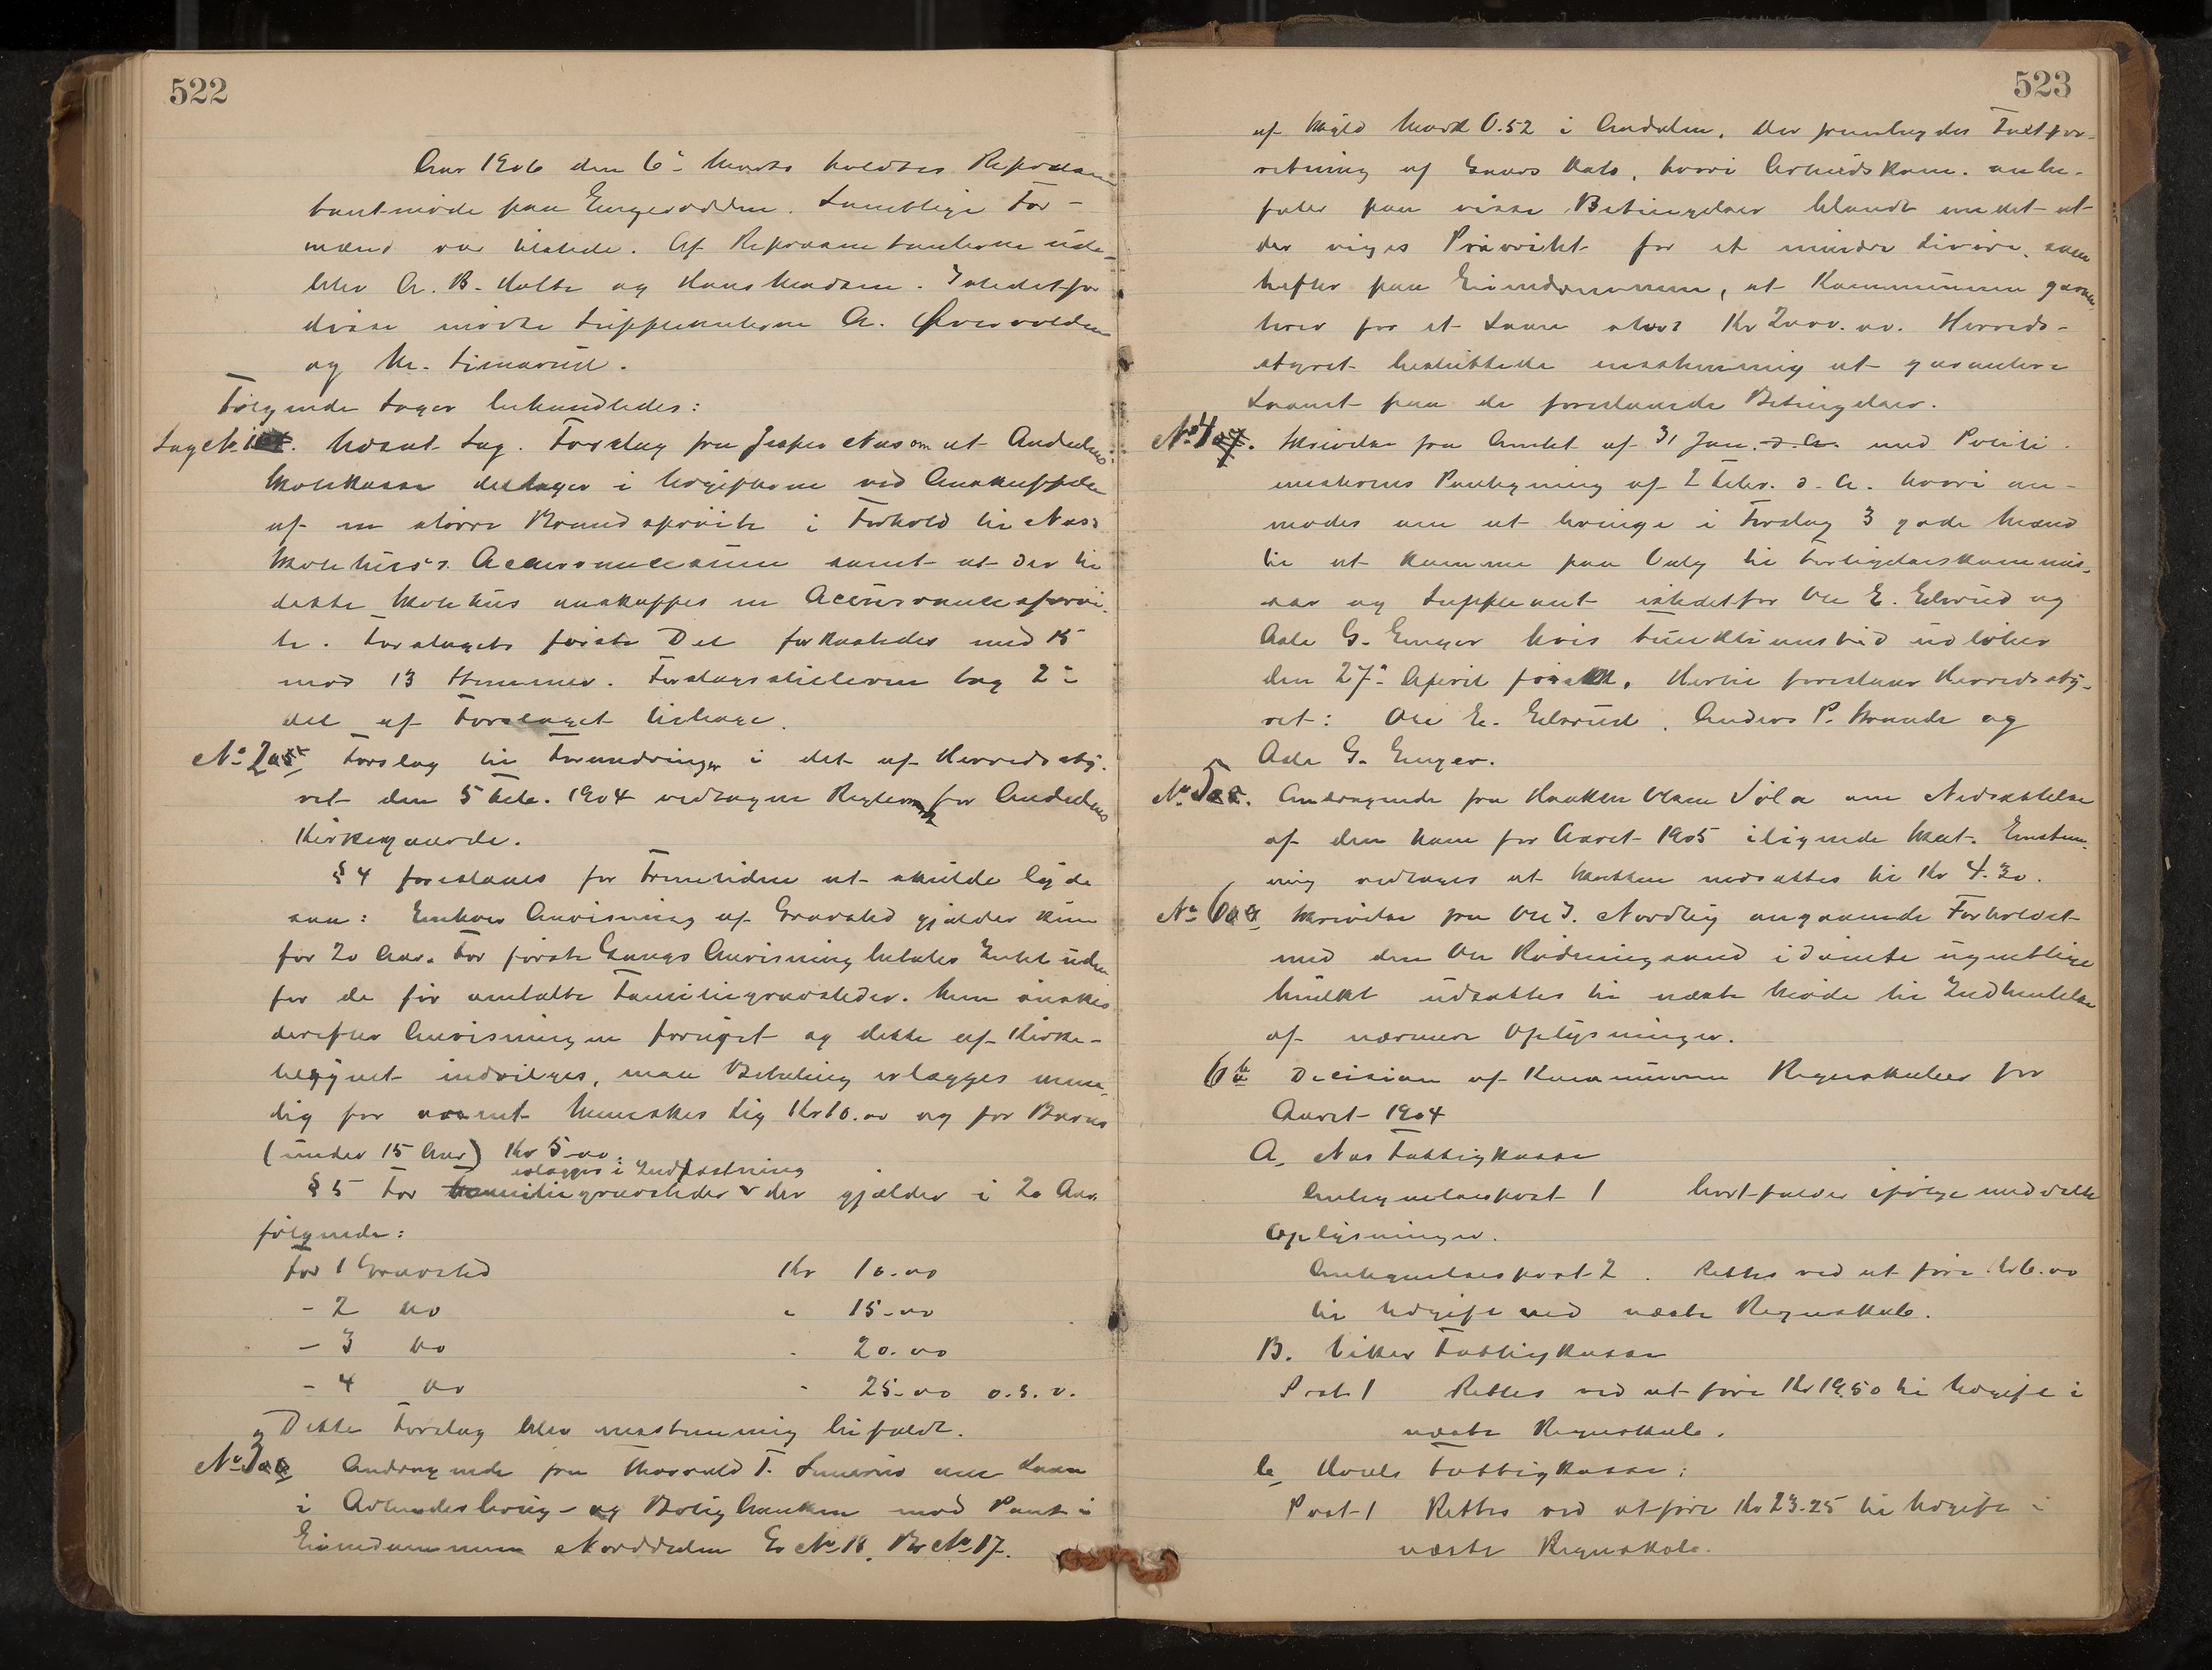 522
Aar 1906 den 6te Marts holdtes Repræsen
tantmøde paa Engerodden. Samtlige For-
mænd var tilstede. Af Repræsentanterne ude-
blev A. B. Holte og Hans Madsen. Istedetfor
disse mødte Suppleanterne A. Øvervolden
og M. Simarud.
Følgende Sager behandledes:
Sag No 1. Udsat Sag. Forslag fra Jesper Næs om at Aadalens
Skolekasse deltager i Udgifterne ved Anskaffelse
af en større Brandsprøite i Forhold til Næs
Skolehus's Assurancesum samt at der til
dette Skolehus anskaffes en Assurancesprøi-
te. Forslagets første Del forkastedes med 15
mod 13 Stemmer. Forslagsstilleren tog 2den
del af Forslaget tilbage.
No 2 Forslag til Forandringer i det af Herredssty-
ret den 5 1904 vedtagne Reglem for Aadalens
Kirkegaarde.
§ 4 foreslaaes for Fremtiden at skulde lyde
saa: Enhver Anvisning af Gravsted gjælder kun
for 20 Aar. For første Gangs Anvisning betales Intet uden
for de før omtalte Familiegravsteder. Men ønskes
derefter Anvisningen fornyet og dette af Kirke-
tilsynet indvilges, maa Betaling erlægges
for voxent Menneskes Lig Kr 10.00 og for Børns
(under 15 Aar) Kr 5.00.
erlægges i Indfæstning
§ 5 For Familiegravsteder der gjælder i 20 Aar
følgende:
For 1 Gravsted Kr 10.00
- 2 do " 15.00
- 3 do " 20.00
- 4 do " 25.00 o.s.v.
Dette Forslag blev enstemmig bifaldt.
No 3 Andragende fra Thorvald T. om Laan
i Arbeiderbrug- og Boligbanken mod Pant i
Eiendommen Norddalen G No 18, Br No 17.
523
af Skyld Mark 0.52 i Aadalen. Der fremlagdes Taxtfor-
retning af Gaars Dato, hvori Arbeidskom. anbe-
faler paa visse Betingelser blandt andet at
der viges Prioritet for et mindre som
hefter paa Eiendommen, at Kommunen garan
terer for et Laan stort Kr 2000.00. Herreds-
styret besluttede enstemmig at garantere
Laanet paa de foreslaaede Betingelser.
No 4. Skrivelse fra Amtet af 31 Jan. d. A. med Politi
mesterens Paategning af 2 Febr. d. A. hvori an-
modes om at bringe i Forslag 3 gode Mænd
til at komme paa Valg til Forligelseskommis-
sær og Suppleant istedetfor Ole E. Elsrud og
Asle G. Enger hvis Funktionstid udløber
den 27de April førstk. Hertil foreslaar Herredssty-
ret: Ole E. Elsrud, Anders P. Strande og
Asle G. Enger.
No 5. Andragende fra Haaken Olsen Søla om Nedsættelse
af den ham for Aaret 1905 ilignede Skat. Enstem
mig vedtages at Skatten nedsættes til Kr 4.30.
No 6a Skrivelse fra Ole J. Nordby angaaende Forholdet
med den Ole Rødningsand idømte ugentlige
hvilket udsættes til næste Møde til Indhentelse
af nærmere Oplysninger.
6b Decision af Kommunens Regnskaber for
Aaret 1904
A. Næs Fattigkasse
Antegnelsespost 1 bortfalder ifølge meddelte
Oplysninger.
Antegnelsespost 2. Rettes ved at føre Kr 6.00
til Udgift ved næste Regnskab.
B. Viker Fattigkasse
Post 1 Rettes ved at føre Kr 19.50 til Udgift i
næste Regnskab.
C. Hvals Fattigkasse:
Post 1 Rettes ved at føre Kr 23.25 til Udgift i
næste Regnskab.